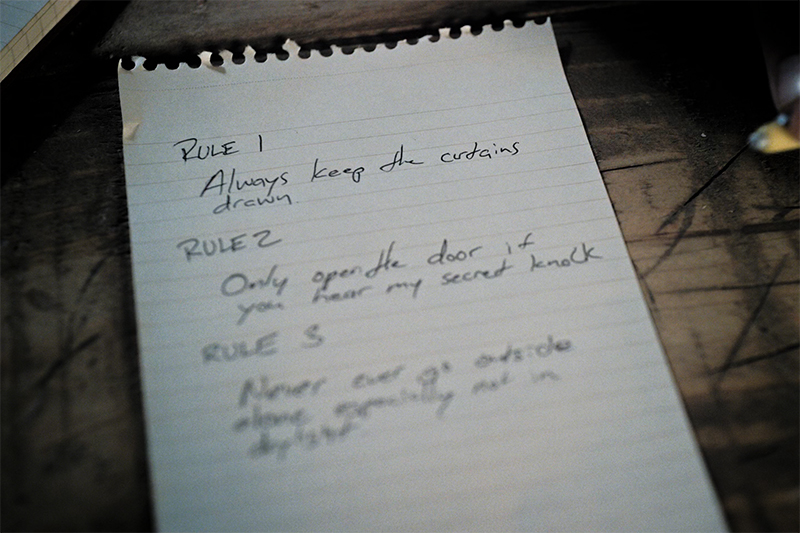 RULE 1
Always keep the curtains
drawn
RULE 2
Only open the door if
you hear my secret knock
RULE 3
Never ever go outside
alone especially not in
daylight